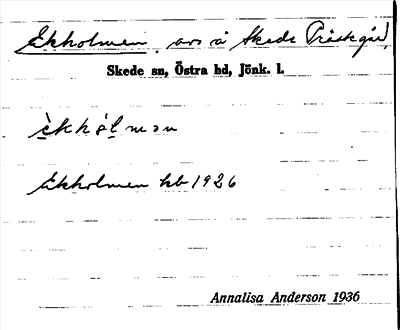 Ekholmen, avs å Skede Prästgård,
Skede sn, Östra hd, Jönk. l.
Ekholmen kb 1926
Annalisa Anderson 1936